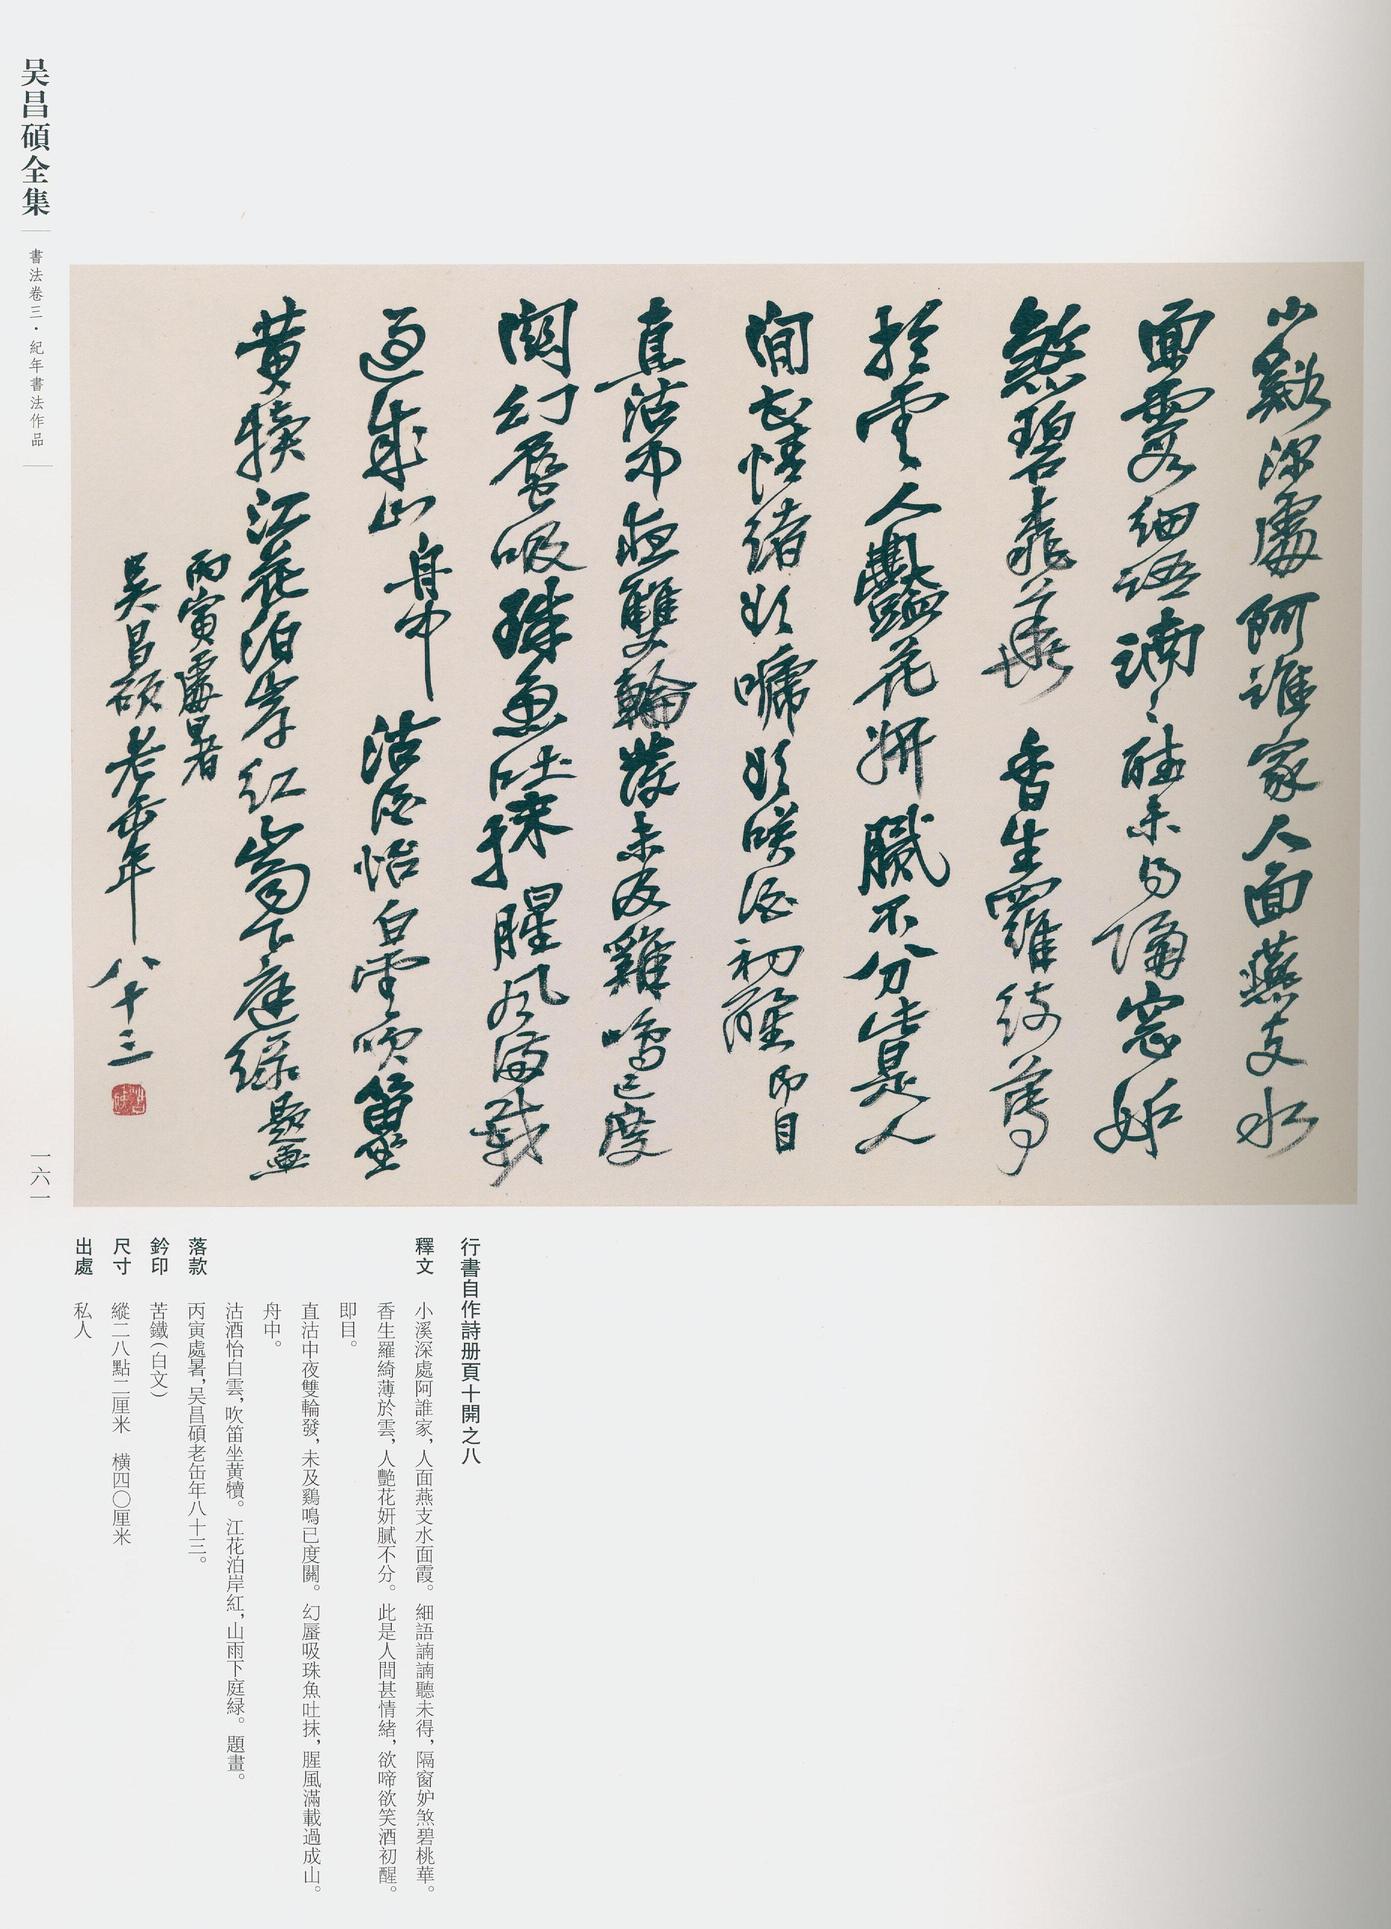 吴昌碩全集
書法卷三·紀年書法作品
一六一
小谿深處阿誰家人面燕支水
面霞細語諵〻聽未得隔窗妒
煞碧桃華 香生羅綺薄
於雲人艷花妍膩不分此是人
間甚情緒欲嗁欲咲酒初醒 即目
直沽中夜雙輪發未及雞鳴已度
關幻蜃吸珠魚吐沫腥風滿載
過成山 舟中 沽酒怡白雲吹笛坐
黄犢江花泊岸紅山雨下庭緑 題畫
丙寅處暑
吴昌碩老缶年八十三
行書自作詩册頁十開之八
釋文 小溪深處阿誰家，人面燕支水面霞。細語諵諵聽未得，隔窗妒煞碧桃華。
香生羅綺薄於雲，人艷花妍膩不分。此是人間甚情緒，欲啼欲笑酒初醒。
即目。
直沽中夜雙輪發，未及鷄鳴已度關。幻蜃吸珠魚吐抹，腥風滿載過成山。
舟中。
沽酒怡白雲，吹笛坐黄犢。江花泊岸紅，山雨下庭緑。題畫。
落款 丙寅處暑，吴昌碩老缶年八十三。
鈐印 苦鐵（白文）
尺寸 縱二八點二厘米 横四〇厘米
出處 私人